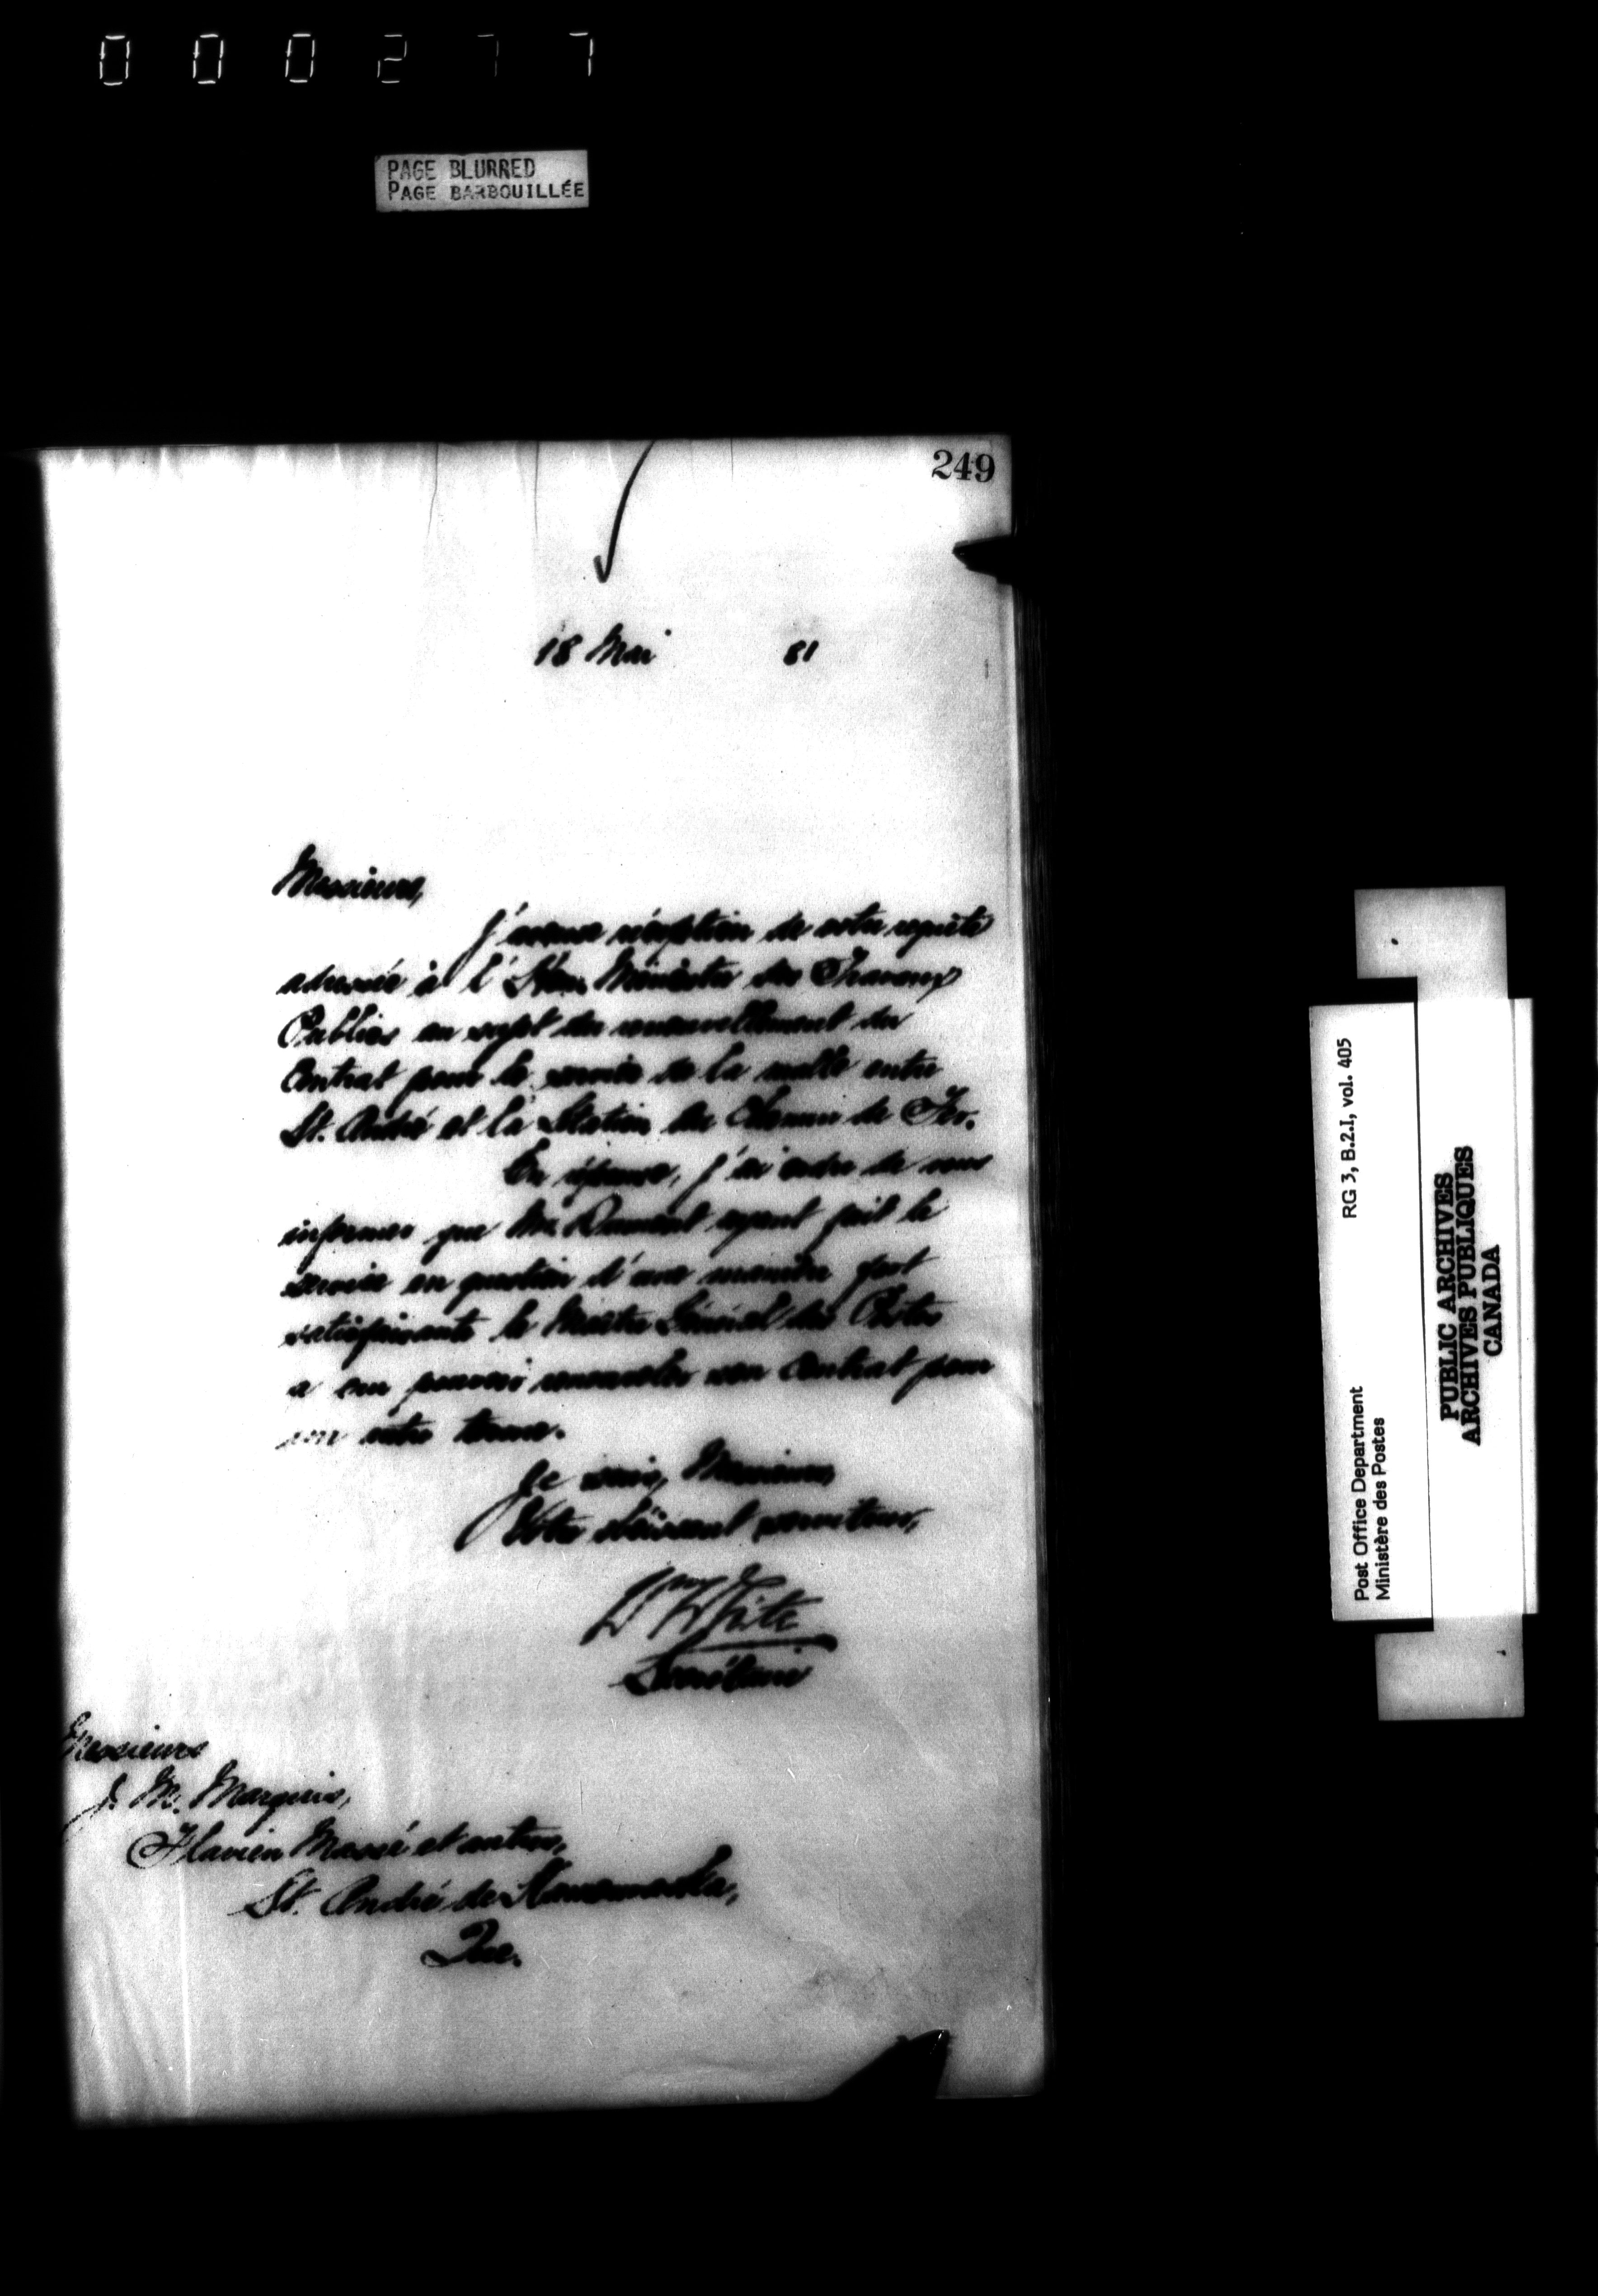 000277
PAGE BLURRED
PAGE BARBOUILLÉE
249
18 Mai 81
Messieurs,
J'accuse réception de votre requête
adressée à l'Hon. Ministre des Travaux
Publics au sujet du renouvellement du
Contrat pour le service de la malle entre
St. André et la Station du Chemin de Fer.
En réponse, j'ai ordre de vous
informer que Mr. Dumont ayant fait le
service en question d'une manière fort
satisfaisante le Maître Général des Postes
a cru pouvoir renouveler son Contrat pour
un autre terme.
Je suis, Messieurs,
Votre obéissant serviteur,
Wm White
Secrétaire
Messieurs
J. M. Marquis,
Flavien Massé et autres,
St. André de Kamouraska,
Que.
Post Office Department RG 3, B.2.I, vol. 405
Ministère des Postes
PUBLIC ARCHIVES
ARCHIVES PUBLIQUES
CANADA